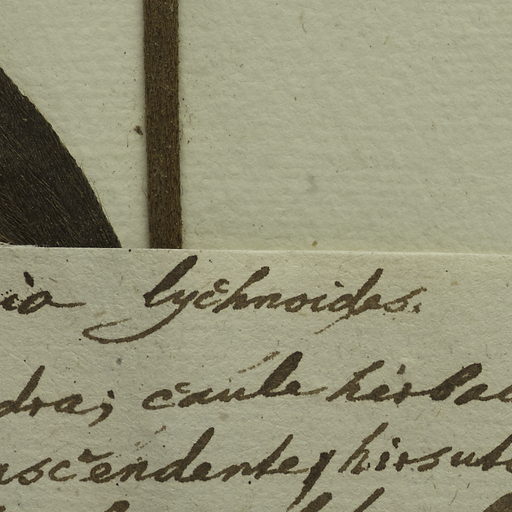 lychnoides.
dra; caule herba
ascendente, hirsut